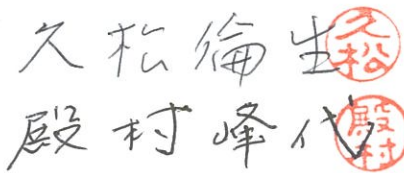 久松倫生 久松
殿村峰代 殿村